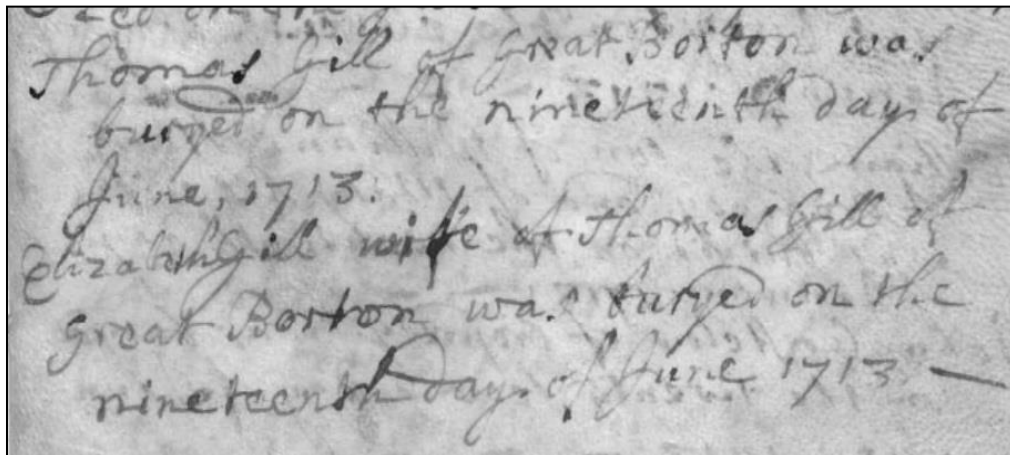 on the
Thomas Gill of Great Borton was
buryed on the nineteenth day of
June, 1713.
Elizabeth Gill wife of Thomas Gill of
great Borton was buryed on the
nineteenth day of June 1713 —